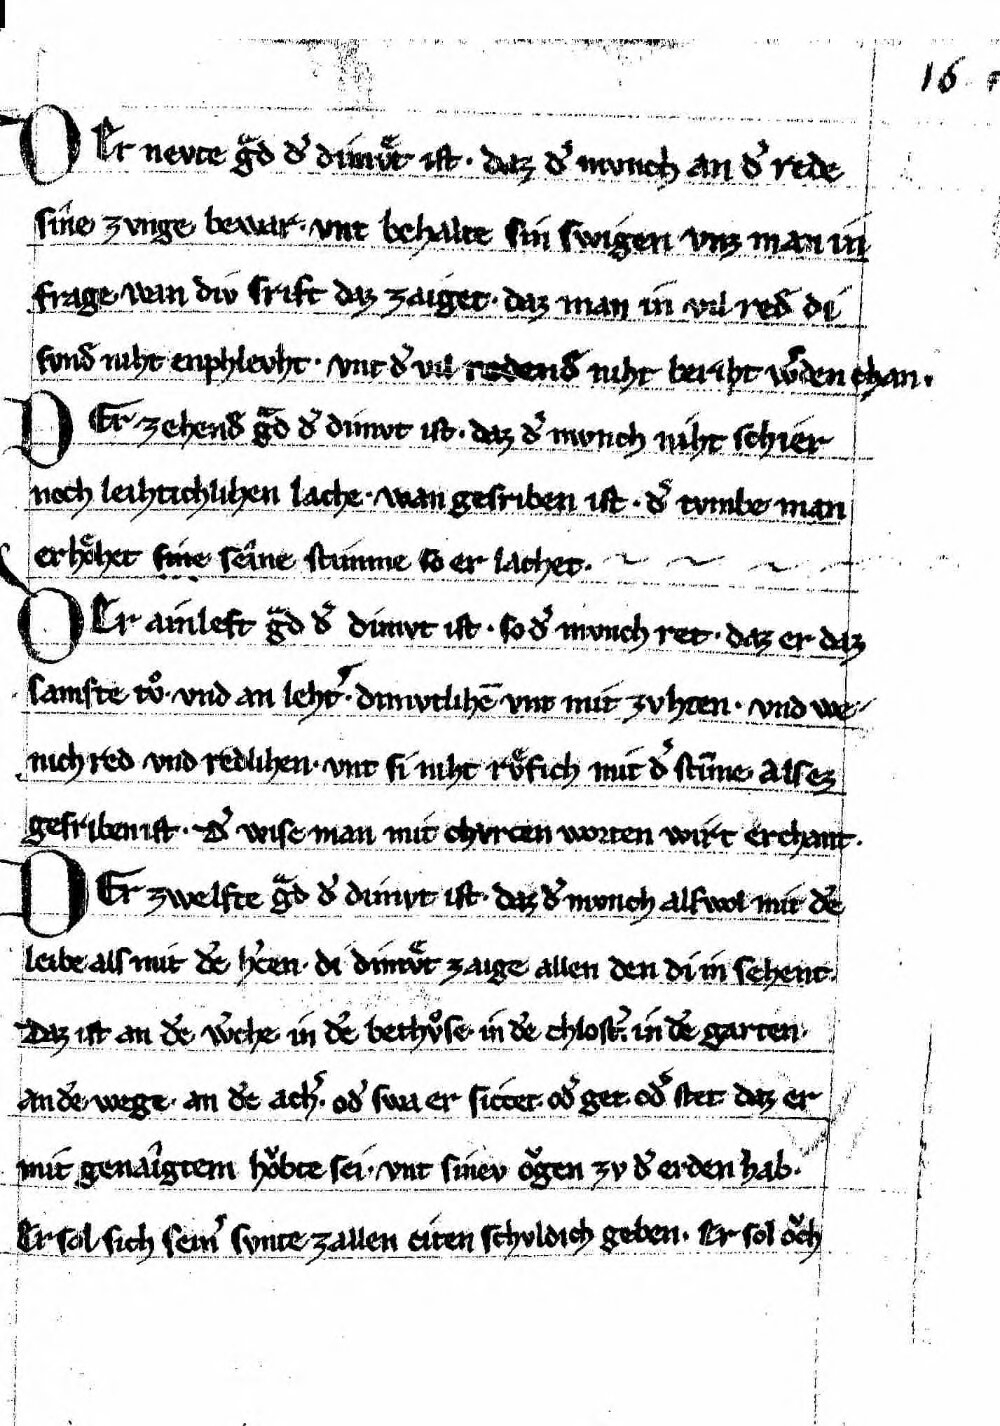 16 r
DEr nevte gͣd dˀ dimvͤt ist · daz dˀ mvnch an dˀ rede
sine zvnge bewar · vnt behalte sin swigen vnz man in
frage · wan div srift daz zaiget · daz man in vil redˀ di
svndˀ niht enphlevht · vnt dˀ vil redendˀ niht beriht wˀden chan ·
DEr zehendˀ gͣd dˀ dimvt ist · daz dˀ mvnch niht schier
noch leihtichlihen lache · wan gesriben ist · dˀ tvmbe man
erhoͤhet sine seine stimme so er lachet ·
DEr ainleft gͣd dˀ dimvt ist · so dˀ mvnch ret · daz er daz
samfte tvͦ · vnd an lehtˀ · dimvtlihē vnt mit zvhten · vnd we
nich red vnd redlihen · vnt si niht rvͤfich mit dˀ stīme · als ez
gesriben ist · Dˀ weise man mit chvrcen worten wirt erchant ·
DEr zwelfte gͣd dˀ dimvt ist · daz dˀ mvnch als wol mit dē
leibe als mit dē hˀcen · di dimvͤt zaige allen den di in sehent ·
Daz ist an dē wˀche in dē bethvͦse · in dē chlostˀ · in dē garten ·
an dē wege · an dē achˀ · odˀ swa er siccet · odˀ get · odˀ stet daz er
mit genaigtem hoͮbte sei · vnt sinev oͮgen zv dˀ erden hab ·
Er sol sich seinˀ svnte zallen citen schvldich geben · Er sol oͮch